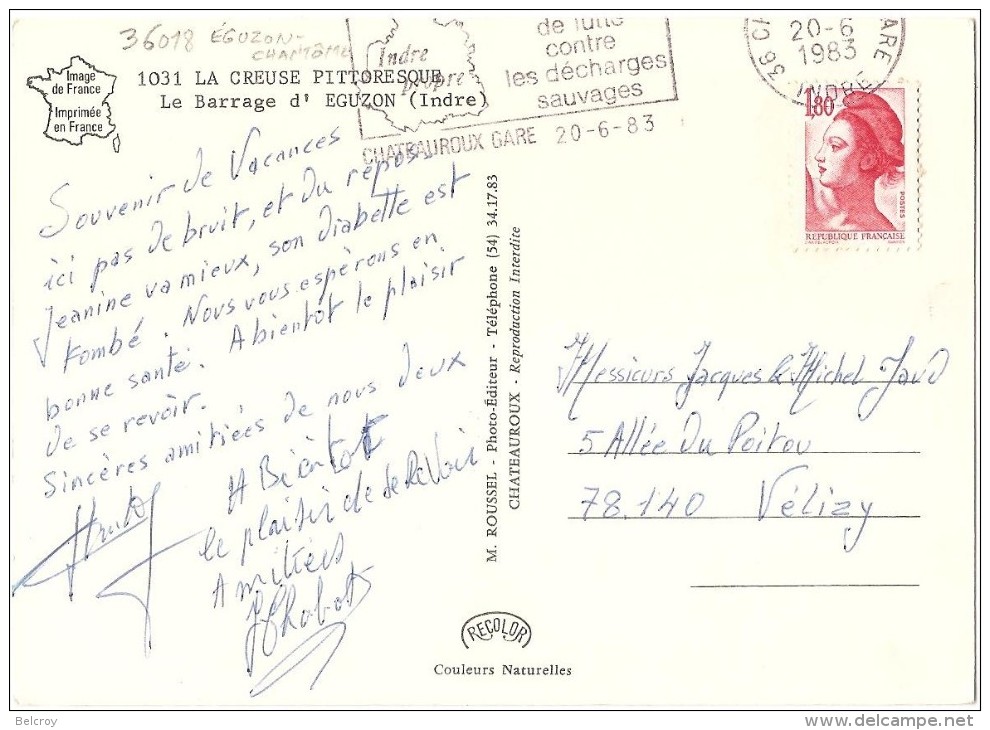 36018 ÉGUZON-
CHANTÔME
Image
de France
Imprimée
en France
1031 LA CREUSE PITTORESQUE
Le Barrage d' EGUZON (Indre)
Indre
propre
de lutte
contre
les décharges
sauvages
CHATEAUROUX GARE 20-6-83
36 CH
GARE
20-6
1983
INDRE
1,80
POSTES
REPUBLIQUE FRANÇAISE
Souvenir de Vacances
ici pas de bruit, et du repos
Jeanine va mieux, son diabette est
tombé. Nous vous espèrons en
bonne santé. A bientot le plaisir
de se revoir.
Sincères amitiées de nous deux
A Bientot
le plaisir de se Revoir
Amitiées
M. ROUSSEL - Photo-Éditeur - Téléphone (54) 34.17.83
CHATEAUROUX - Reproduction Interdite
Messieurs Jacques & Michel Jaud
5 Allée Du Poitou
78.140 Vélizy
RECOLOR
Couleurs Naturelles
Belcroy
www.delcampe.net